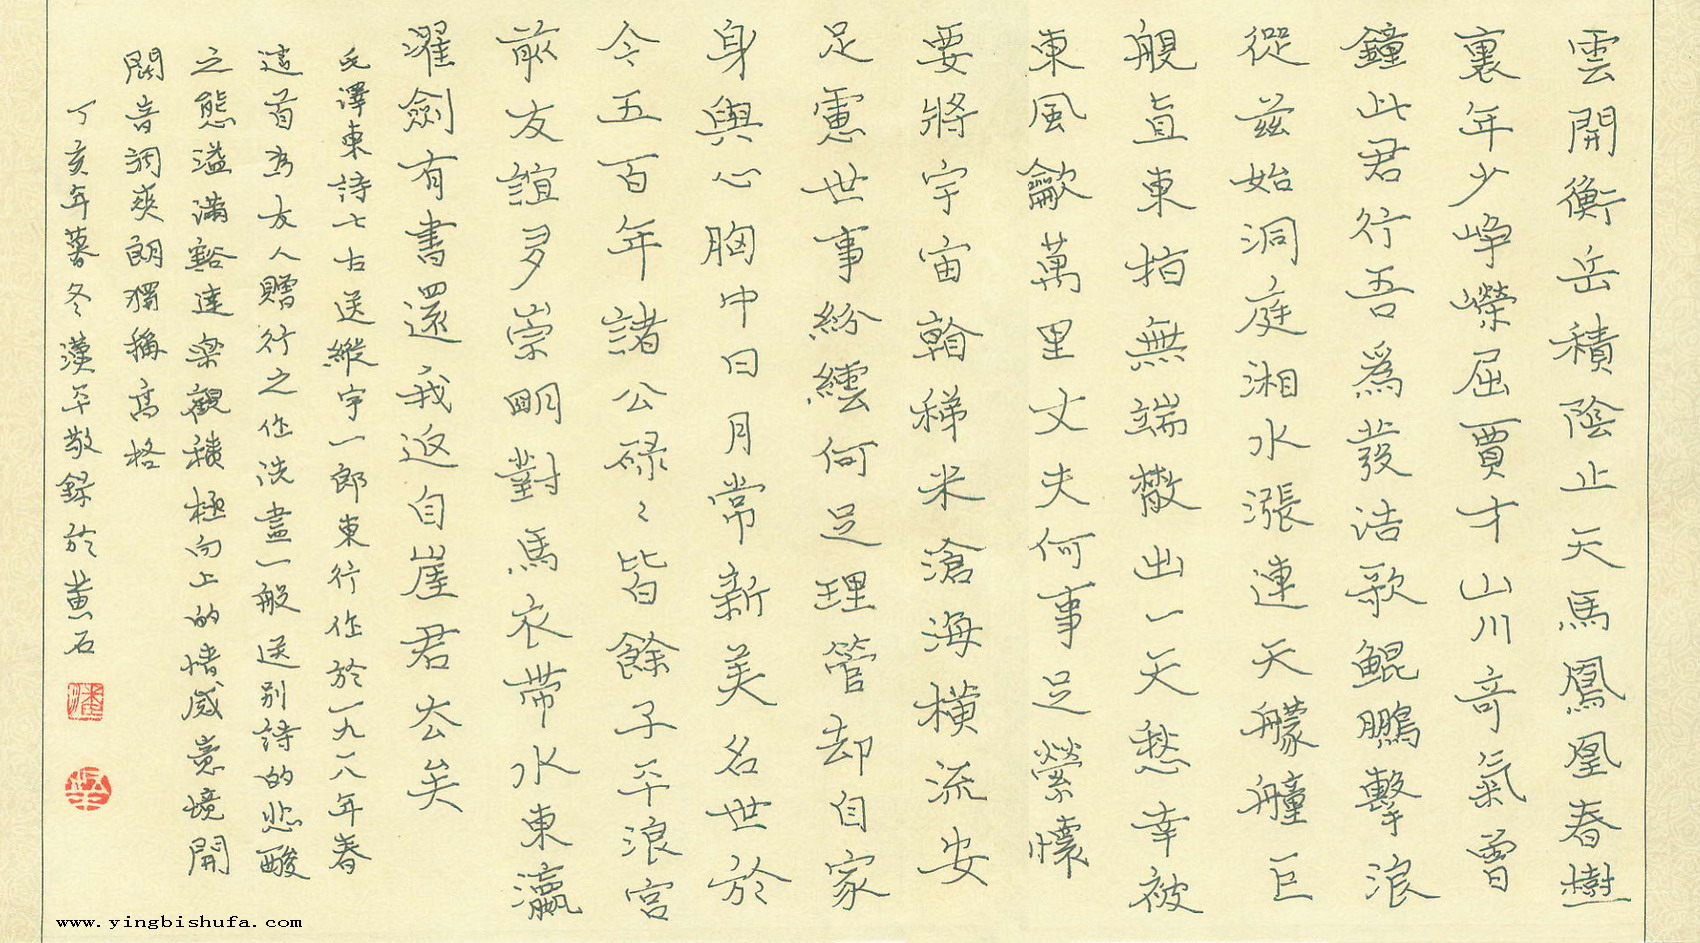 雲開衡岳積陰止天馬鳳凰春樹
裏年少崢嶸屈賈才山川奇氣曾
鐘此君行吾爲發浩歌鯤鵬擊浪
從兹始洞庭湘水漲連天艨艟巨
舰直東指無端散出一天愁幸被
東風龡萬里丈夫何事足縈懷
要將宇宙看稊米滄海橫流安
足慮世事紛紜何足理管却自家
身與心胸中日月常新美名世於
今五百年諸公碌々皆餘子平浪宫
前友誼多崇明對馬衣帶水東瀛
濯劍有書還我返自崖君去矣
毛澤東詩七古送縱宇一郎東行作於一九一八年春
這首为友人贈行之作洗盡一般送别詩的悲酸
之態溢滿豁達樂觀積極向上的情感意境開
闊音調爽朗獨稱高格
丁亥年暮冬漢平敬録於黄石
潘
www.yingbishufa.com